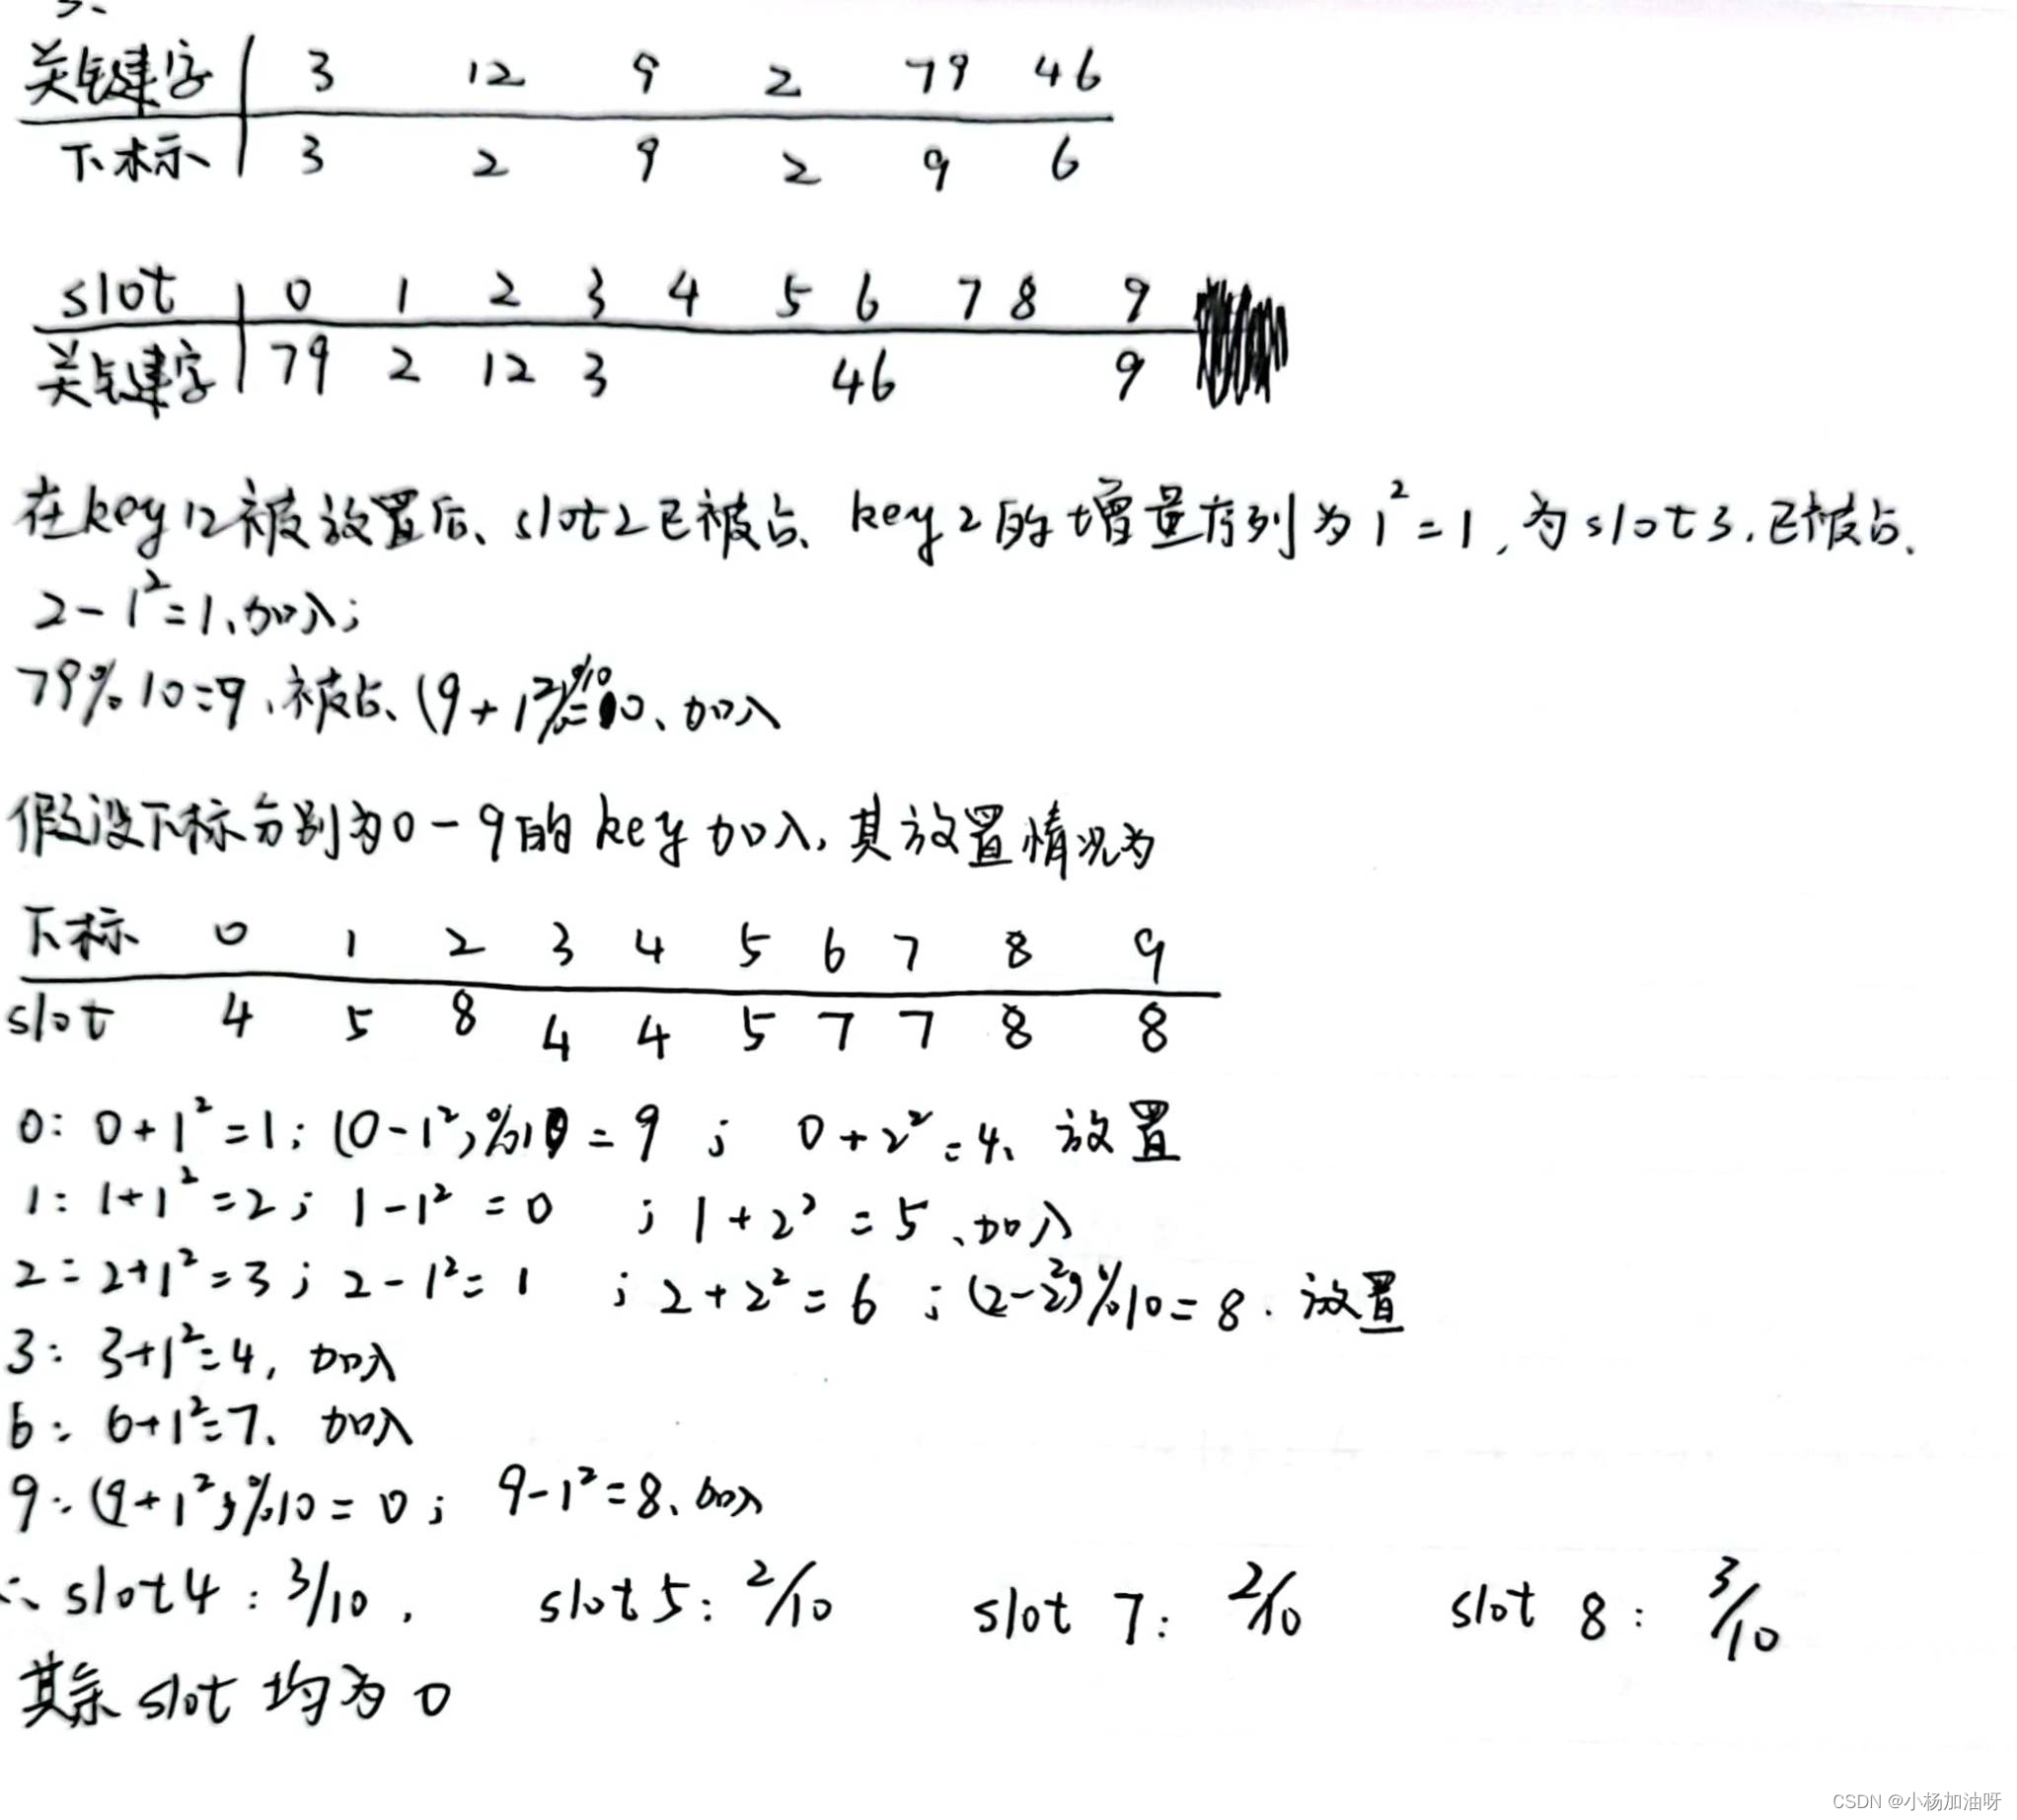 关键字 3 12 9 2 79 46
下标 3 2 9 2 9 6
slot 0 1 2 3 4 5 6 7 8 9
关键字 79 2 12 3 46 9
在key12被放置后、slot2已被占、key2的增量序列为1²=1,为slot3,已被占.
2-1²=1、加入;
79%10=9、被占、(9+1²)%10=0、加入
假设下标分别为0-9的key加入,其放置情况为
下标 0 1 2 3 4 5 6 7 8 9
slot 4 5 8 4 4 5 7 7 8 8
0: 0+1²=1; (0-1²)%10=9 ; 0+2²=4、放置
1: 1+1²=2; 1-1²=0 ; 1+2²=5、加入
2: 2+1²=3; 2-1²=1 ; 2+2²=6 ; (2-2²)%10=8. 放置
3: 3+1²=4, 加入
6: 6+1²=7、加入
9: (9+1²)%10=0; 9-1²=8、加入
∴ slot4: 3/10, slot5: 2/10 slot 7: 2/10 slot 8: 3/10
其余slot均为0
CSDN @小杨加油呀